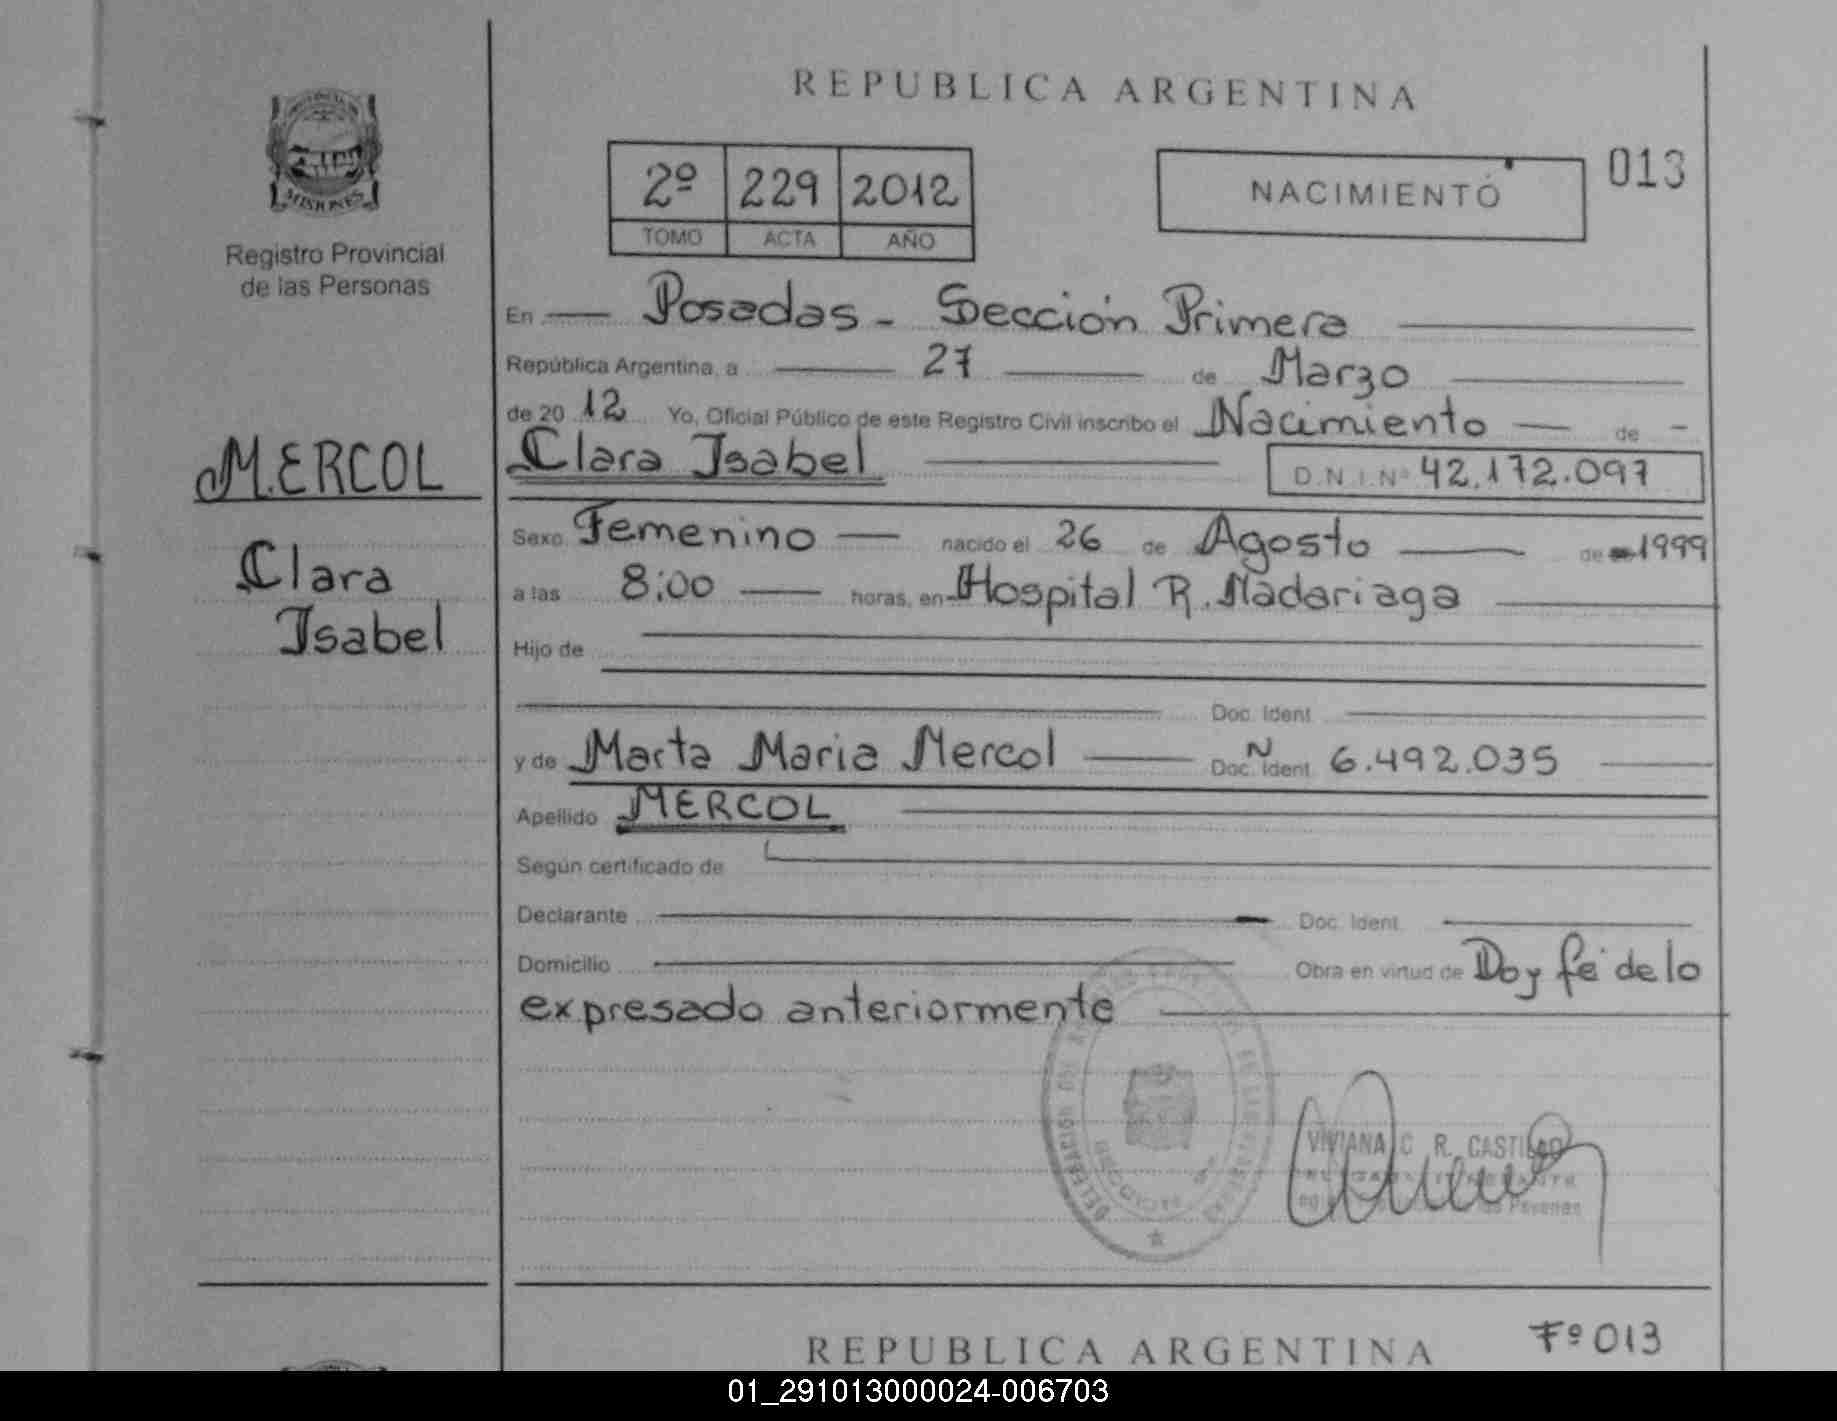 REPUBLICA ARGENTINA
MISIONES
Registro Provincial
de las Personas
2º 229 2012
TOMO ACTA AÑO
NACIMIENTO
013
En Posadas - Sección Primera
República Argentina, a 27 de Marzo
de 20 12 Yo, Oficial Público de este Registro Civil inscribo el Nacimiento de
MERCOL
Clara Isabel
Clara Isabel D.N.I.Nº 42.172.097
Sexo Femenino nacido el 26 de Agosto de 1999
a las 8:00 horas, en Hospital R. Madariaga
Hijo de
Doc. Ident.
y de Marta Maria Mercol Doc. Ident. N 6.492.035
Apellido MERCOL
Según certificado de
Declarante Doc. Ident.
Domicilio Obra en virtud de Doy fé de lo
expresado anteriormente
VIVIANA C. R. CASTILLO
REPUBLICA ARGENTINA
Fº 013
01_291013000024-006703